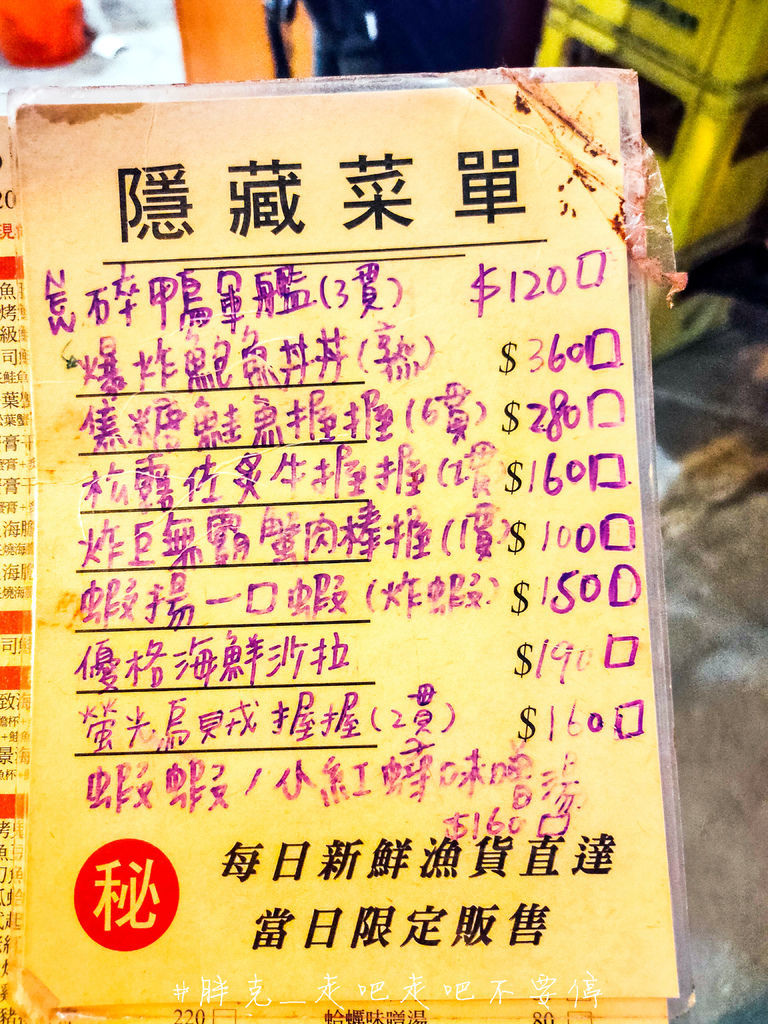 隱藏菜單
NEW 碎鴨軍艦(3貫) $120□
爆炸鮑魚丼丼(熟) $360□
焦糖鮭魚握握(6貫) $280□
松露佐炙牛握握(2貫 $160□
炸巨無霸蟹肉棒握(1貫) $100□
蝦揚一口蝦(炸蝦) $150□
優格海鮮沙拉 $190□
螢光烏賊握握(2貫) $160□
蝦蝦/小紅蟳味噌湯
$160□
秘
每日新鮮漁貨直達
當日限定販售
#胖克_走吧走吧不要停
220□ 蛤蠣味噌湯 80□